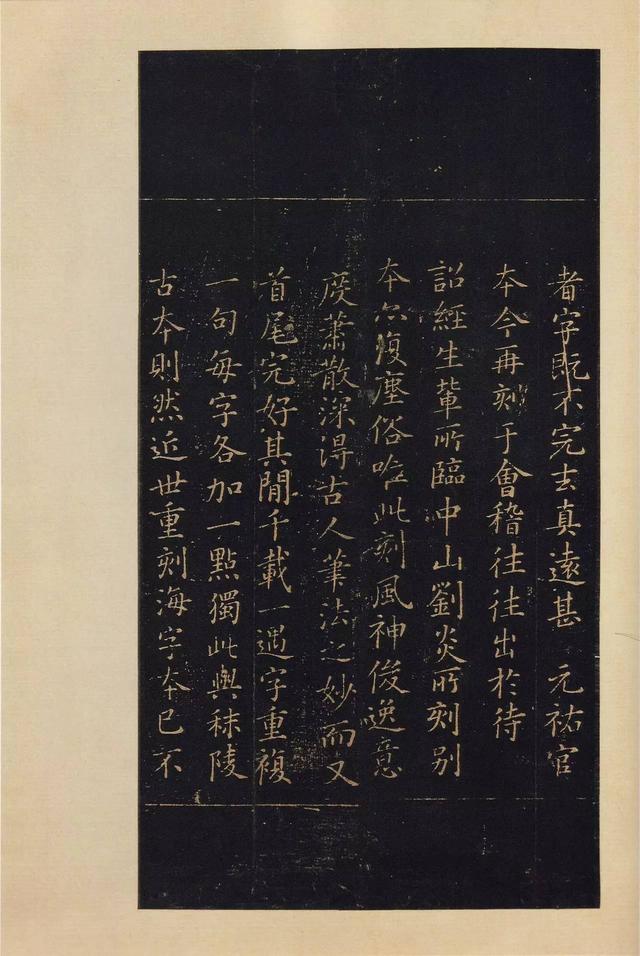 者字既不完去真遠甚 元祐官
本今再刻于會稽往往出於待
詔經生輩所臨中山劉炎所刻别
本亦復塵俗唯此刻風神俊逸意
度蕭散深得古人筆法之妙而又
首尾完好其間千載一遇字重複
一句每字各加一點獨此與秣陵
古本則然近世重刻海字本已不